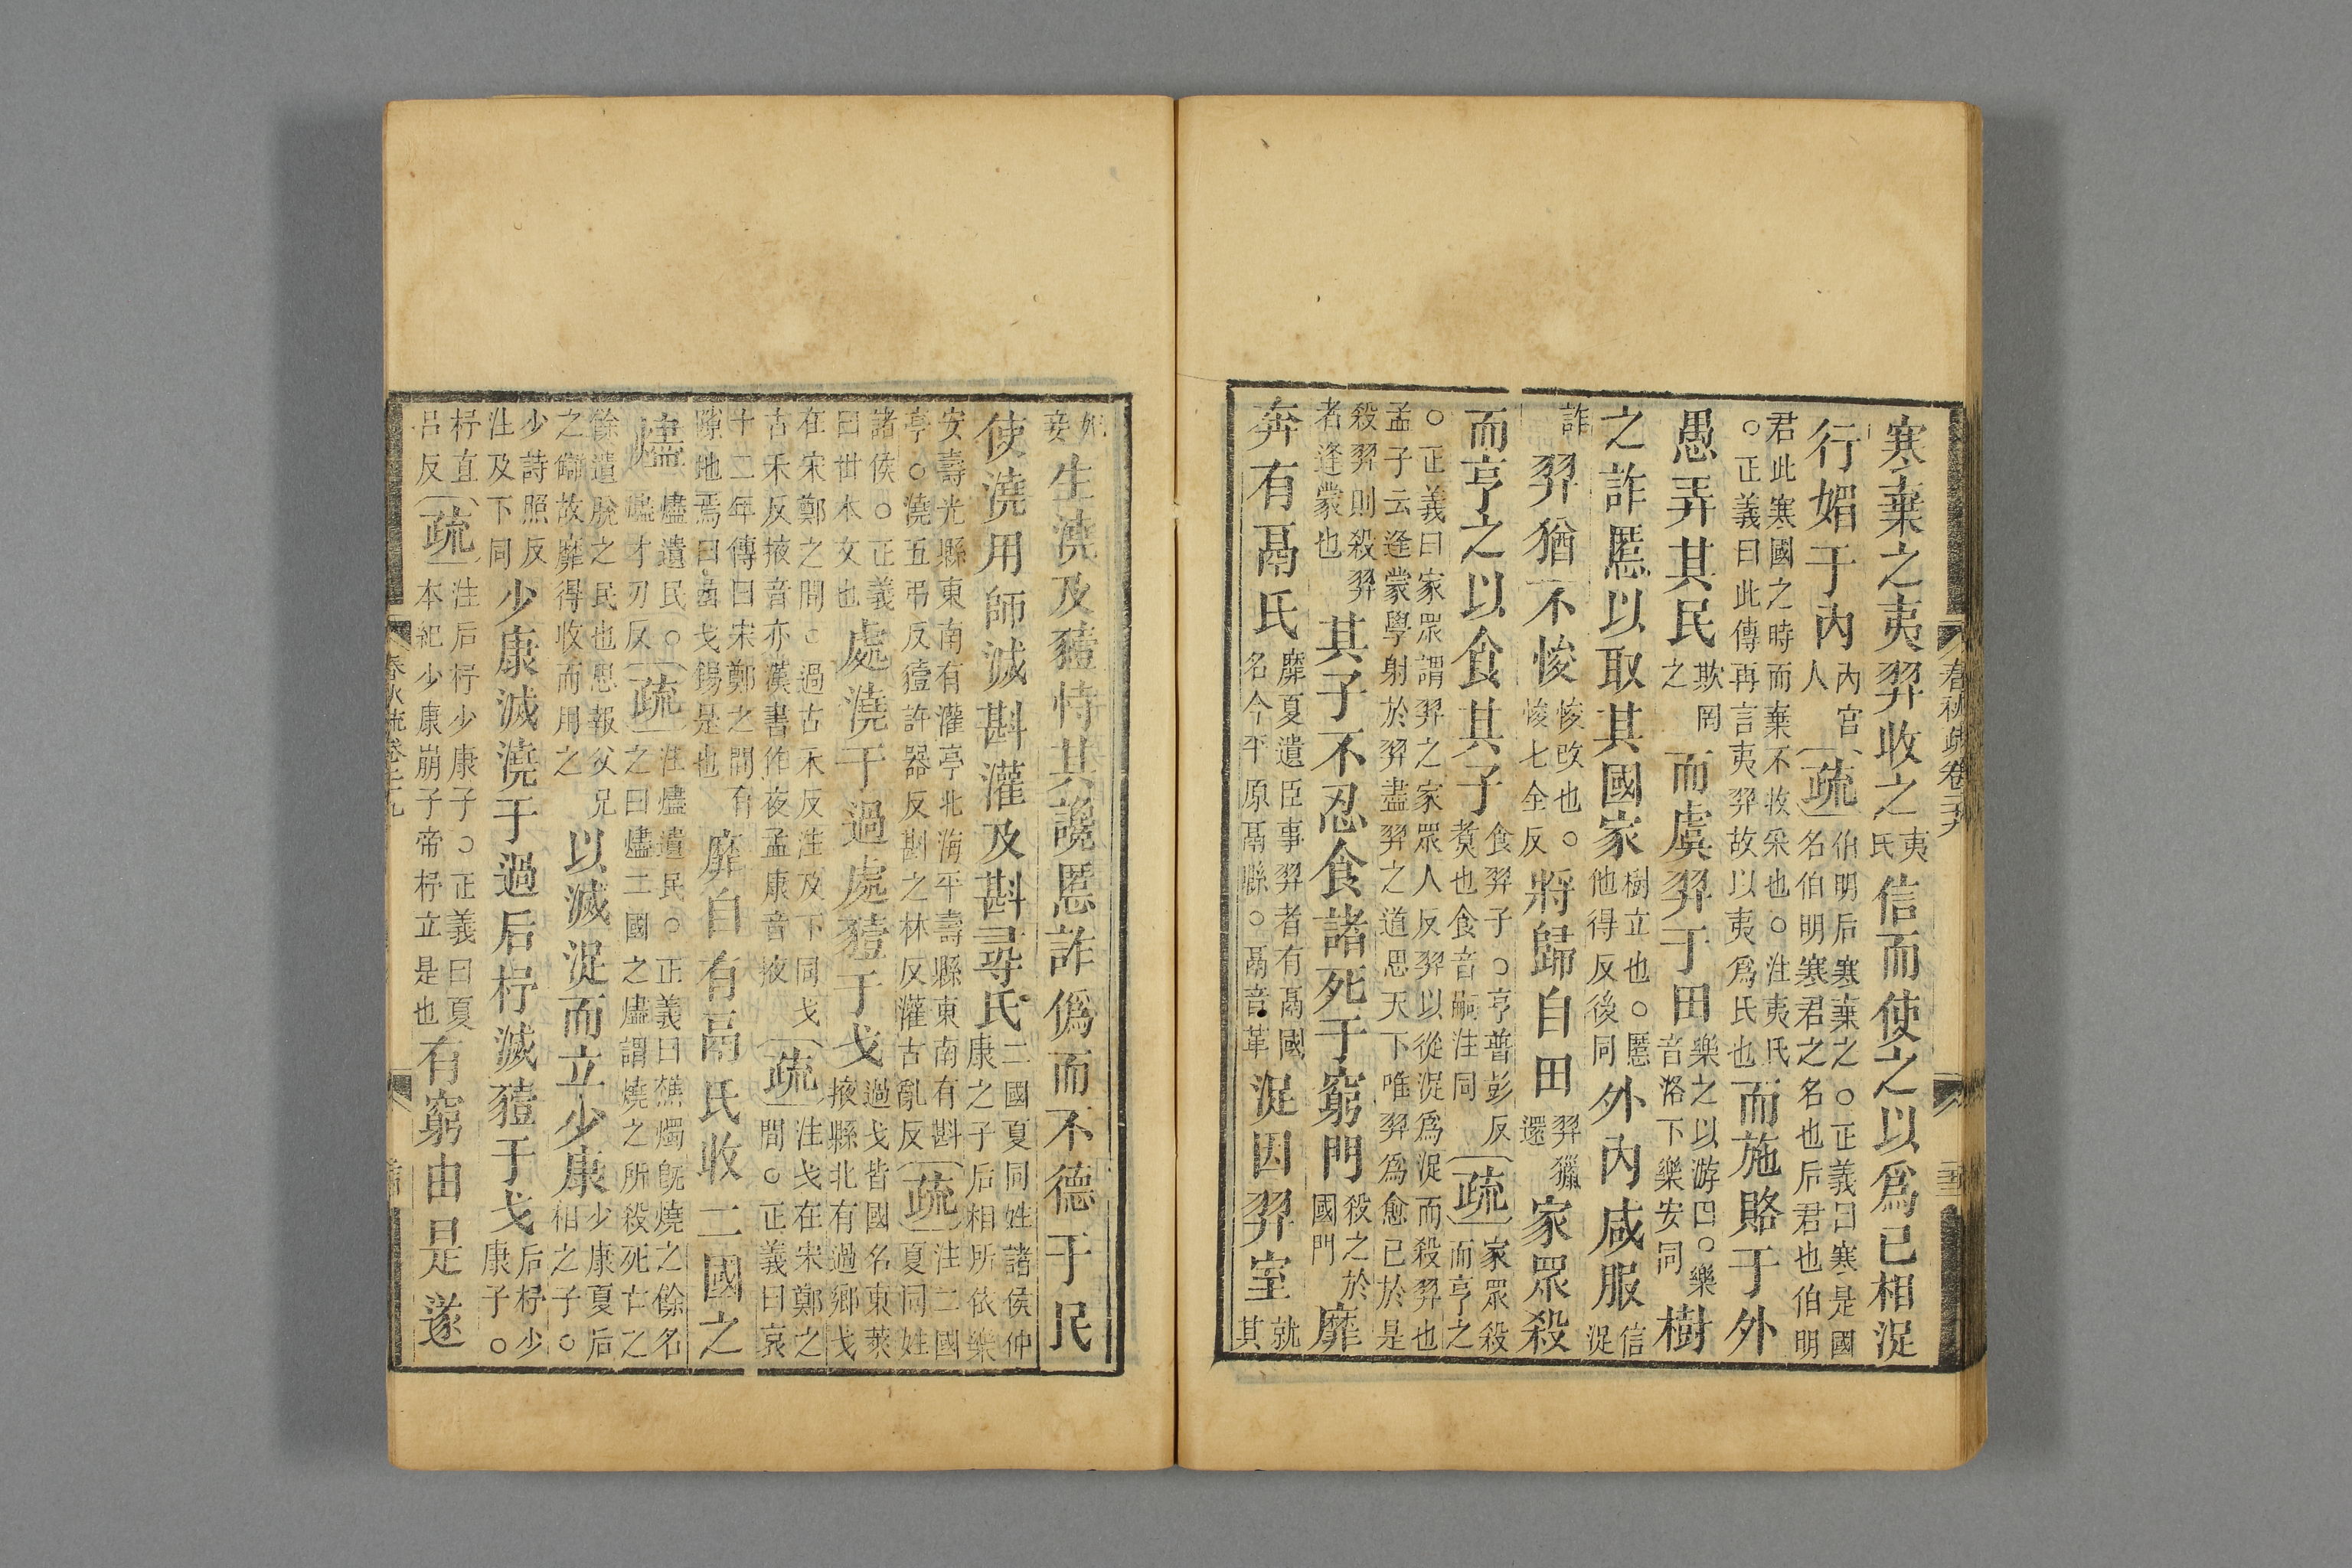 寒棄之夷羿收之夷氏信而使之以爲已相浞
行媚于內內宮人疏伯明后寒棄之○正義曰寒是國名伯明寒君之名也后君也伯明
君此寒國之時而棄不收采也○注夷氏○正義曰此傳再言夷羿故以夷爲氏也而施賂于外
愚弄其民欺罔之而虞羿于田樂之以游田○樂音洛下樂安同樹
之詐慝以取其國家樹立也○慝他得反後同外內咸服信浞
詐羿猶不悛悛改也○悛七全反將歸自田羿獵還家眾殺
而亨之以食其子食羿子○亨普彭反煑也食音嗣注同疏家眾殺而亨之
○正義曰家眾謂羿之家眾人反羿以從浞爲浞而殺羿也孟子云逄蒙學射於羿盡羿之道思天下唯羿爲愈已於是
殺羿則殺羿者逄蒙也其子不忍食諸死于窮門殺之於國門靡
奔有鬲氏靡夏遺臣事羿者有鬲國名今平原鬲縣○鬲音革浞因羿室就其
妃妾生澆及豷恃其讒慝詐僞而不德于民
使澆用師滅斟灌及斟尋氏二國夏同姓諸侯仲康之子后相所依樂
安壽光縣東南有灌亭北海平壽縣東南有斟亭○澆五弔反豷許器反斟之林反灌古亂反疏注二國夏同姓
諸侯○正義曰世本文也處澆于過處豷于戈過戈皆國名東萊掖縣北有過鄉戈
在宋鄭之間○過古禾反注及下同戈古禾反掖音亦漢書作夜孟康音掖疏注戈在宋鄭之間○正義曰哀
十二年傳曰宋鄭之間有隙地焉曰嵒戈鍚是也靡自有鬲氏收二國之
燼燼遺民○燼才刃反疏注燼遺民○正義曰蕉燭既燒之餘名之曰燼二國之燼謂燒之所殺死亡之
餘遺脫之民也思報父兄之讎故靡得收而用之以滅浞而立少康少康夏后相之子○
少詩照反注及下同少康滅澆于過后杼滅豷于戈后杼少康子○
杼直呂反疏注后杼少康子○正義曰夏本紀少康崩子帝杼立是也有窮由是遂